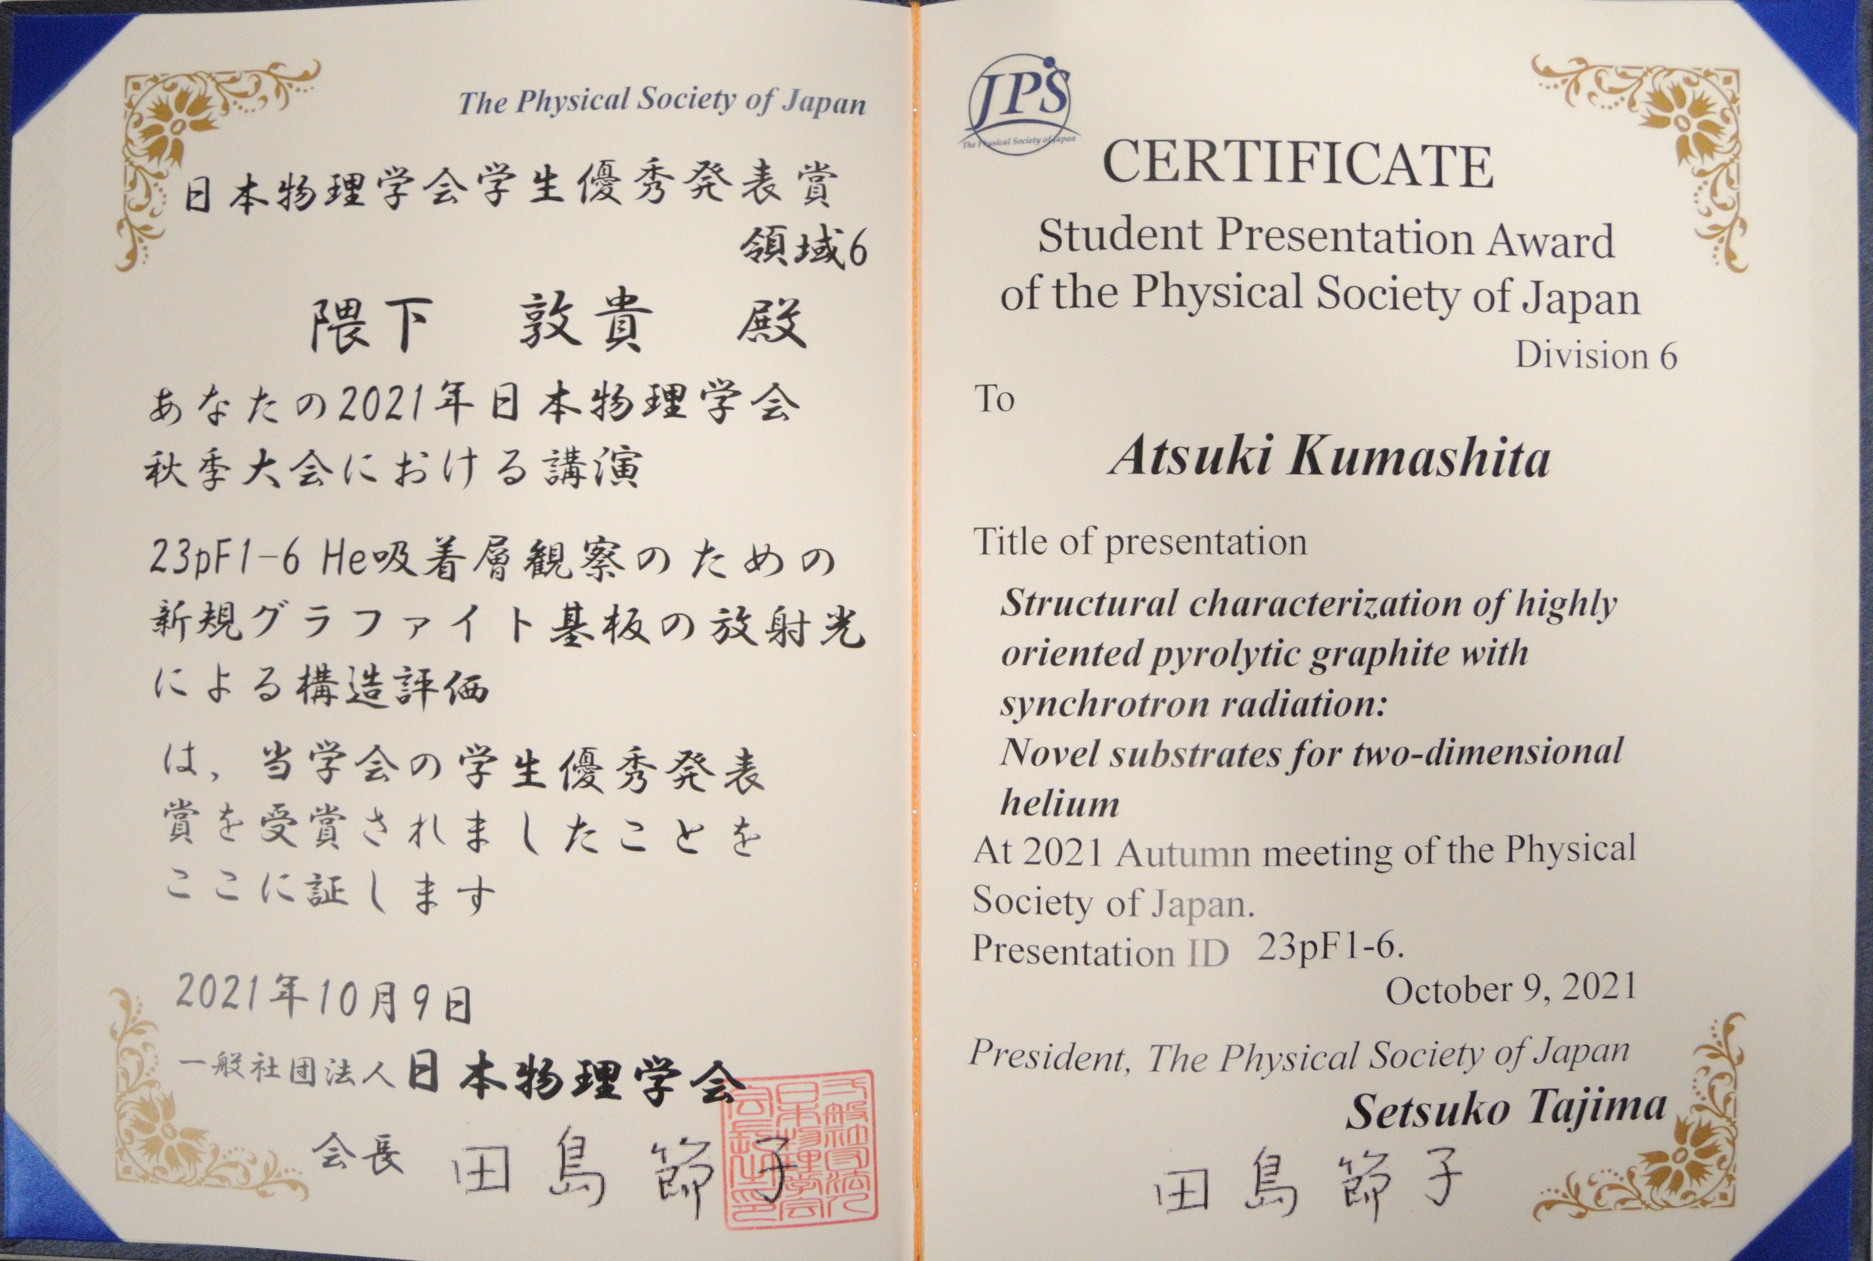 The Physical Society of Japan
日本物理学会学生優秀発表賞
領域6
隈下 敦貴 殿
あなたの2021年日本物理学会
秋季大会における講演
23pF1-6 He吸着層観察のための
新規グラファイト基板の放射光
による構造評価
は，当学会の学生優秀発表
賞を受賞されましたことを
ここに証します
2021年10月9日
一般社団法人日本物理学会
会長 田島 節子
一般社団法人
日本物理学会
会長之印
JPS
The Physical Society of Japan
CERTIFICATE
Student Presentation Award
of the Physical Society of Japan
Division 6
To
Atsuki Kumashita
Title of presentation
Structural characterization of highly
oriented pyrolytic graphite with
synchrotron radiation:
Novel substrates for two-dimensional
helium
At 2021 Autumn meeting of the Physical
Society of Japan.
Presentation ID 23pF1-6.
October 9, 2021
President, The Physical Society of Japan
Setsuko Tajima
田島 節子